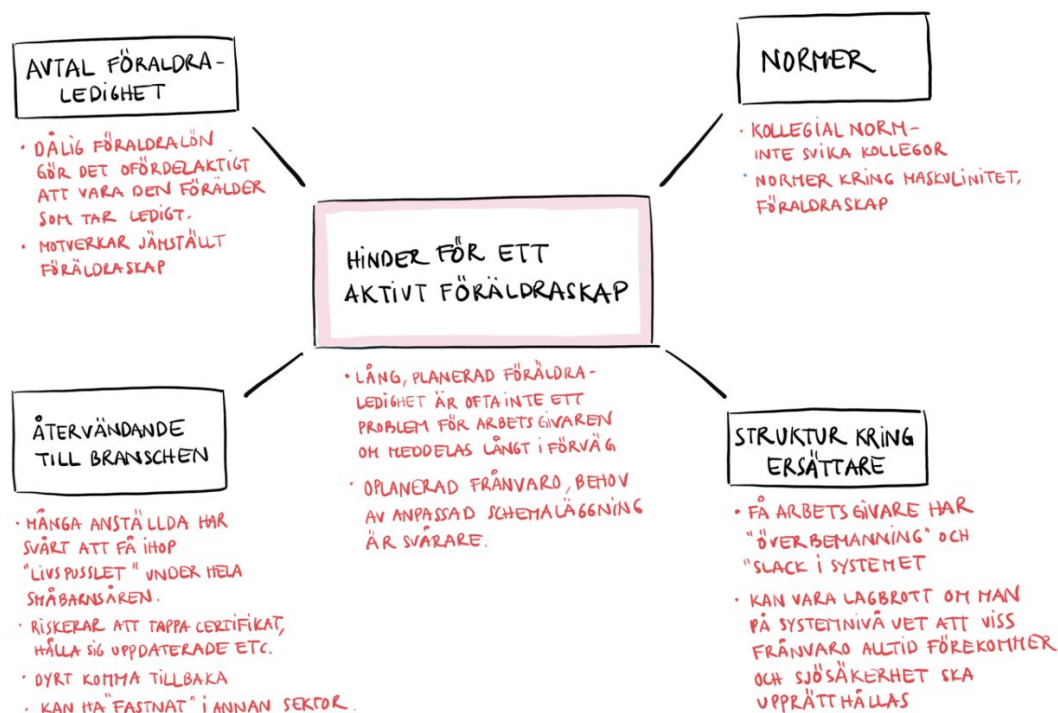 AVTAL FÖRALDRA-
LEDIGHET
• DÅLIG FÖRALDRALÖN
GÖR DET OFÖRDELAKTIGT
ATT VARA DEN FÖRÄLDER
SOM TAR LEDIGT.
• MOTVERKAR JÄMSTÄLLT
FÖRÄLDRASKAP
NORMER
• KOLLEGIAL NORM-
INTE SVIKA KOLLEGOR
• NORMER KRING MASKULINITET,
FÖRALDRASKAP
HINDER FÖR ETT
AKTIVT FÖRÄLDRASKAP
• LÅNG, PLANERAD FÖRÄLDRA-
LEDIGHET ÄR OFTA INTE ETT
PROBLEM FÖR ARBETSGIVAREN
OM MEDDELAS LÅNGT I FÖRVÄG
• OPLANERAD FRÅNVARO, BEHOV
AV ANPASSAD SCHEMALÄGGNING
ÄR SVÅRARE.
ÅTERVÄNDANDE
TILL BRANSCHEN
• MÅNGA ANSTÄLLDA HAR
SVÅRT ATT FÅ IHOP
"LIVSPUSSLET" UNDER HELA
SMÅBARNSÅREN.
• RISKERAR ATT TAPPA CERTIFIKAT,
HÅLLA SIG UPPDATERADE ETC.
• DYRT KOMMA TILLBAKA
• KAN HA "FASTNAT" I ANNAN SEKTOR.
STRUKTUR KRING
ERSÄTTARE
• FÅ ARBETSGIVARE HAR
"ÖVERBEMANNING" OCH
"SLACK I SYSTEMET
• KAN VARA LAGBROTT OM MAN
PÅ SYSTEMNIVÅ VET ATT VISS
FRÅNVARO ALLTID FÖREKOMMER
OCH SJÖSÄKERHET SKA
UPPRÄTTHÅLLAS